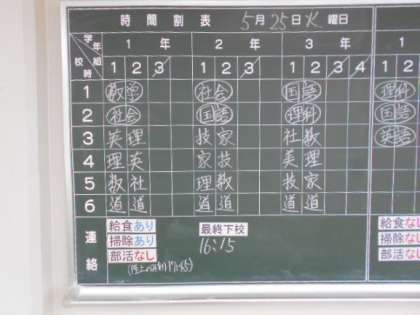 時間割表 5月25日火曜日
学年 組 校時 1年 2年 3年 1
1 2 3 1 2 3 1 2 3 4 1 2
1 数学 社会 国語 理科
2 社会 国語 理科 国語
3 英 理 技 家 社 数 英語
4 理 英 家 技 美 理
5 数 社 理 数 技 家
6 道 道 道 道 道 道
連絡 給食あり 最終下校 給食な
掃除あり 16:15 掃除な
部活なし 部活な